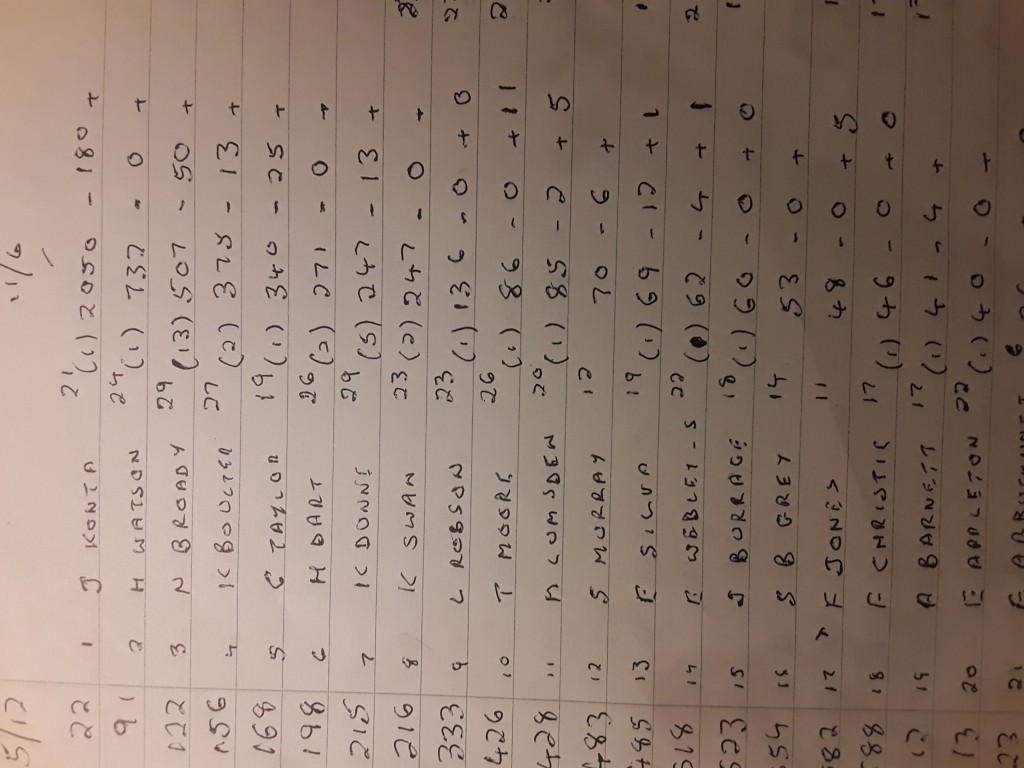 5/17 -1/6
22 1 J KONTA 21 (1) 2050 - 180 +
91 2 H WATSON 24 (1) 737 - 0 +
122 3 N BROADY 29 (13) 507 - 50 +
156 4 K BOULTER 27 (2) 375 - 13 +
168 5 G TAYLOR 19 (1) 340 - 25 +
198 6 H DART 26 (2) 271 - 0 +
215 7 K DUNNE 29 (5) 247 - 13 +
216 8 K SWAN 23 (2) 247 - 0 +
333 9 L ROBSON 23 (1) 136 - 0 + 0
426 10 T MOORE 26 (1) 86 - 0 + 11
428 11 M LUMSDEN 20 (1) 85 - 2 + 5
483 12 S MURRAY 12 70 - 6 +
485 13 E SILVA 19 (1) 69 - 12 + 1
518 14 E WEBLEY-S 22 (1) 62 - 4 + 1
523 15 J BURRAGE 18 (1) 60 - 0 + 0
554 16 S B GREY 14 53 - 0 +
582 17 F JONES 11 48 - 0 + 5
588 18 F CHRISTIE 17 (1) 46 - 0 + 0
19 A BARNETT 17 (1) 41 - 4 +
20 E APPLETON 22 (1) 40 - 0 +
21